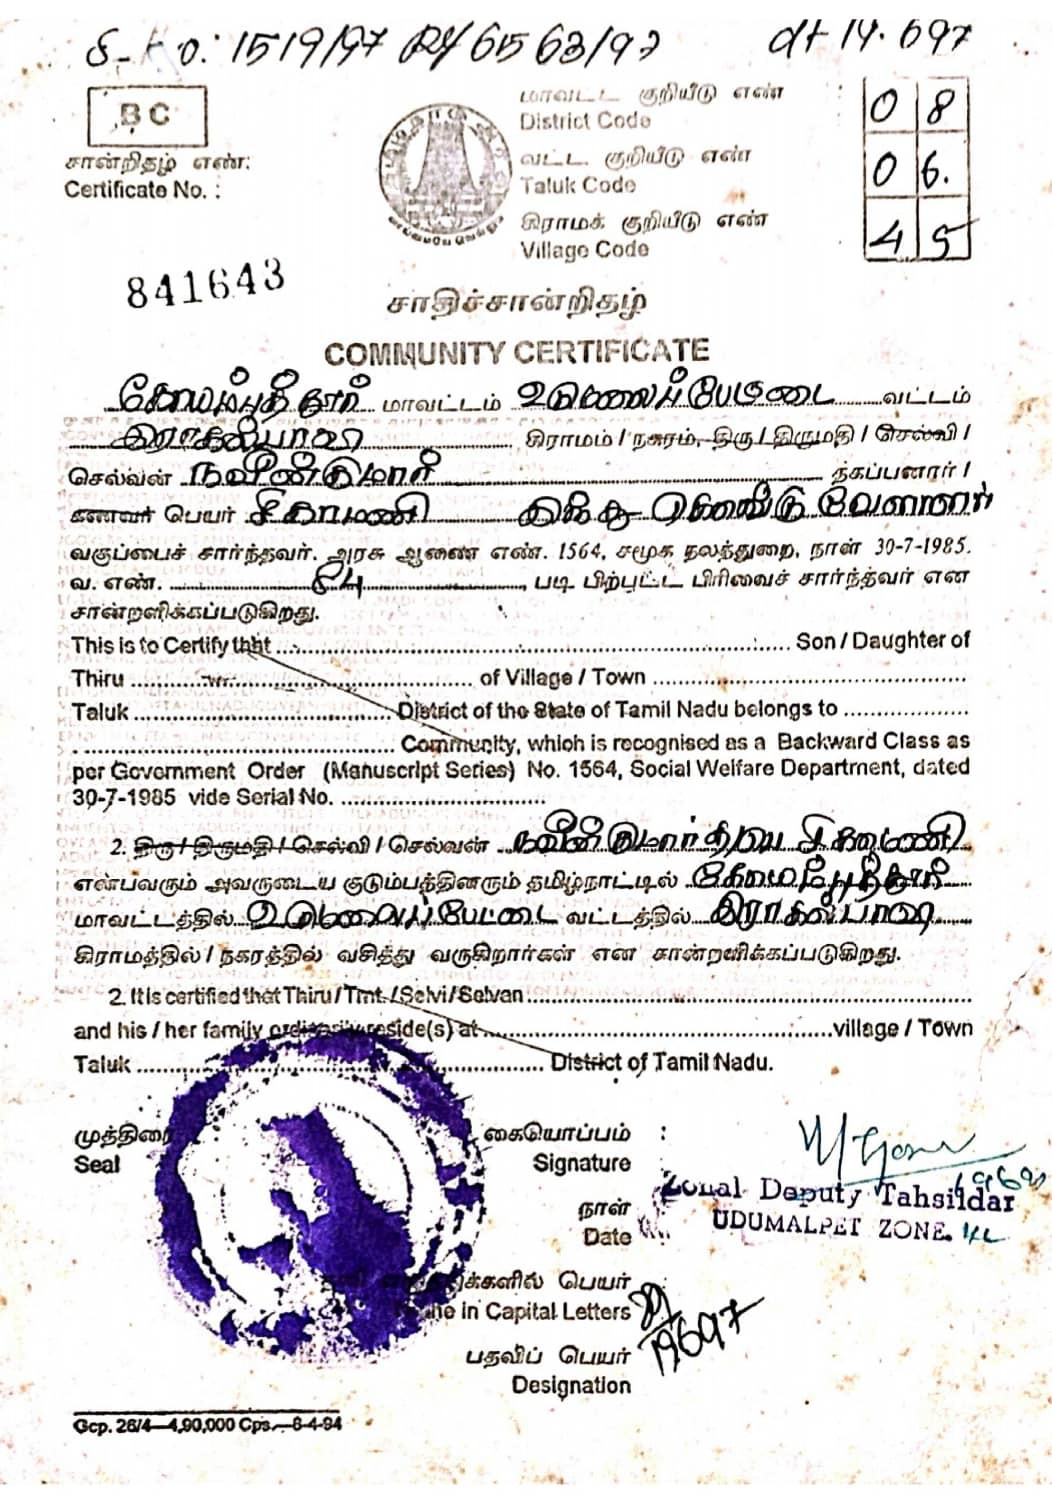 S. No: 1519/97 Ry 6563/97 dt 19.6.97
BC
சான்றிதழ் எண்:
Certificate No. :
மாவட்ட குறியீடு எண் : 08
District Code
வட்ட குறியீடு எண் 06.
Taluk Code
கிராமக் குறியீடு எண் 45
Village Code
841643
சாதிச்சான்றிதழ்
COMMUNITY CERTIFICATE
கோயம்புத்தூர் மாவட்டம் உடுமலைப்பேட்டை வட்டம்
கிராமம் / நகரம், திரு / திருமதி / செல்வி /
செல்வன் நவீன்குமார் தகப்பனார் /
கணவர் பெயர் சிகாமணி வேளாளர்
வகுப்பைச் சார்ந்தவர். அரசு ஆணை எண். 1564, சமூக நலத்துறை, நாள் 30-7-1985.
வ. எண். 84 படி பிற்பட்ட பிரிவைச் சார்ந்தவர் என
சான்றளிக்கப்படுகிறது.
This is to Certify that Son / Daughter of
Thiru of Village / Town
Taluk District of the State of Tamil Nadu belongs to
Community, which is recognised as a Backward Class as
per Government Order (Manuscript Series) No. 1564, Social Welfare Department, dated
30-7-1985 vide Serial No.
2. திரு / திருமதி / செல்வி / செல்வன் நவீன்குமார் சிகாமணி
என்பவரும் அவருடைய குடும்பத்தினரும் தமிழ்நாட்டில் கோயம்புத்தூர்
மாவட்டத்தில் உடுமலைப்பேட்டை வட்டத்தில்
கிராமத்தில் / நகரத்தில் வசித்து வருகிறார்கள் என சான்றளிக்கப்படுகிறது.
2. It is certified that Thiru / Tmt. / Selvi / Selvan
and his / her family ordinarily reside(s) at village / Town
Taluk District of Tamil Nadu.
முத்திரை
Seal
கையொப்பம் :
Signature
Zonal Deputy Tahsildar
UDUMALPET ZONE.
நாள்
Date
பெயர்
in Capital Letters
19697
பதவிப் பெயர்
Designation
Gcp. 26/4—4,90,000 Cps.—6-4-94